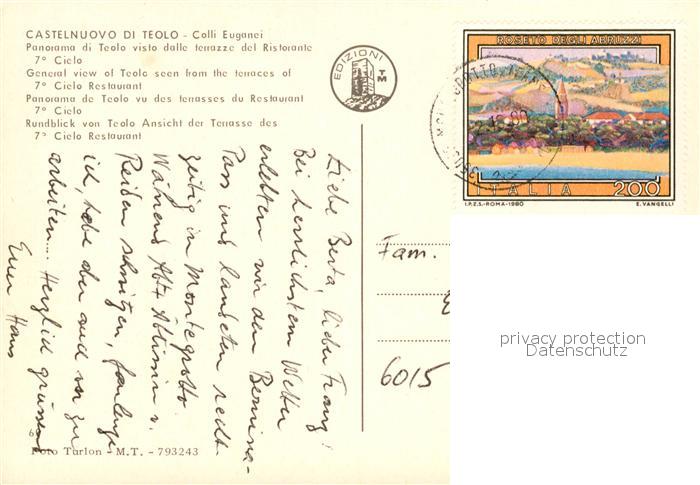 CASTELNUOVO DI TEOLO - Colli Euganei
Panorama di Teolo visto dalle terrazze del Ristorante
7° Cielo
General view of Teolo seen from the terraces of
7° Cielo Restaurant
Panorama de Teolo vu des terrasses du Restaurant
7° Cielo
Rundblick von Teolo Ansicht der Terrasse des
7° Cielo Restaurant
EDIZIONI
TM
ROSETO DEGLI ABRUZZI
ITALIA 200
I.P.Z.S.-ROMA-1980
E. VANGELLI
Liebe Berta, lieber Franz!
Bei herrlichstem Wetter
erlebten wir den Bernina-
Pass und landeten recht-
zeitig in Montegrotto.
Während Abt+Äbtissin v.
Reiden schwitzen, faulenze
ich, habe aber auch vor zu
arbeiten... Herzlich grüssend
Euer Hans
Fam.
6015
privacy protection
Datenschutz
Foto Turlon - M.T. - 793243